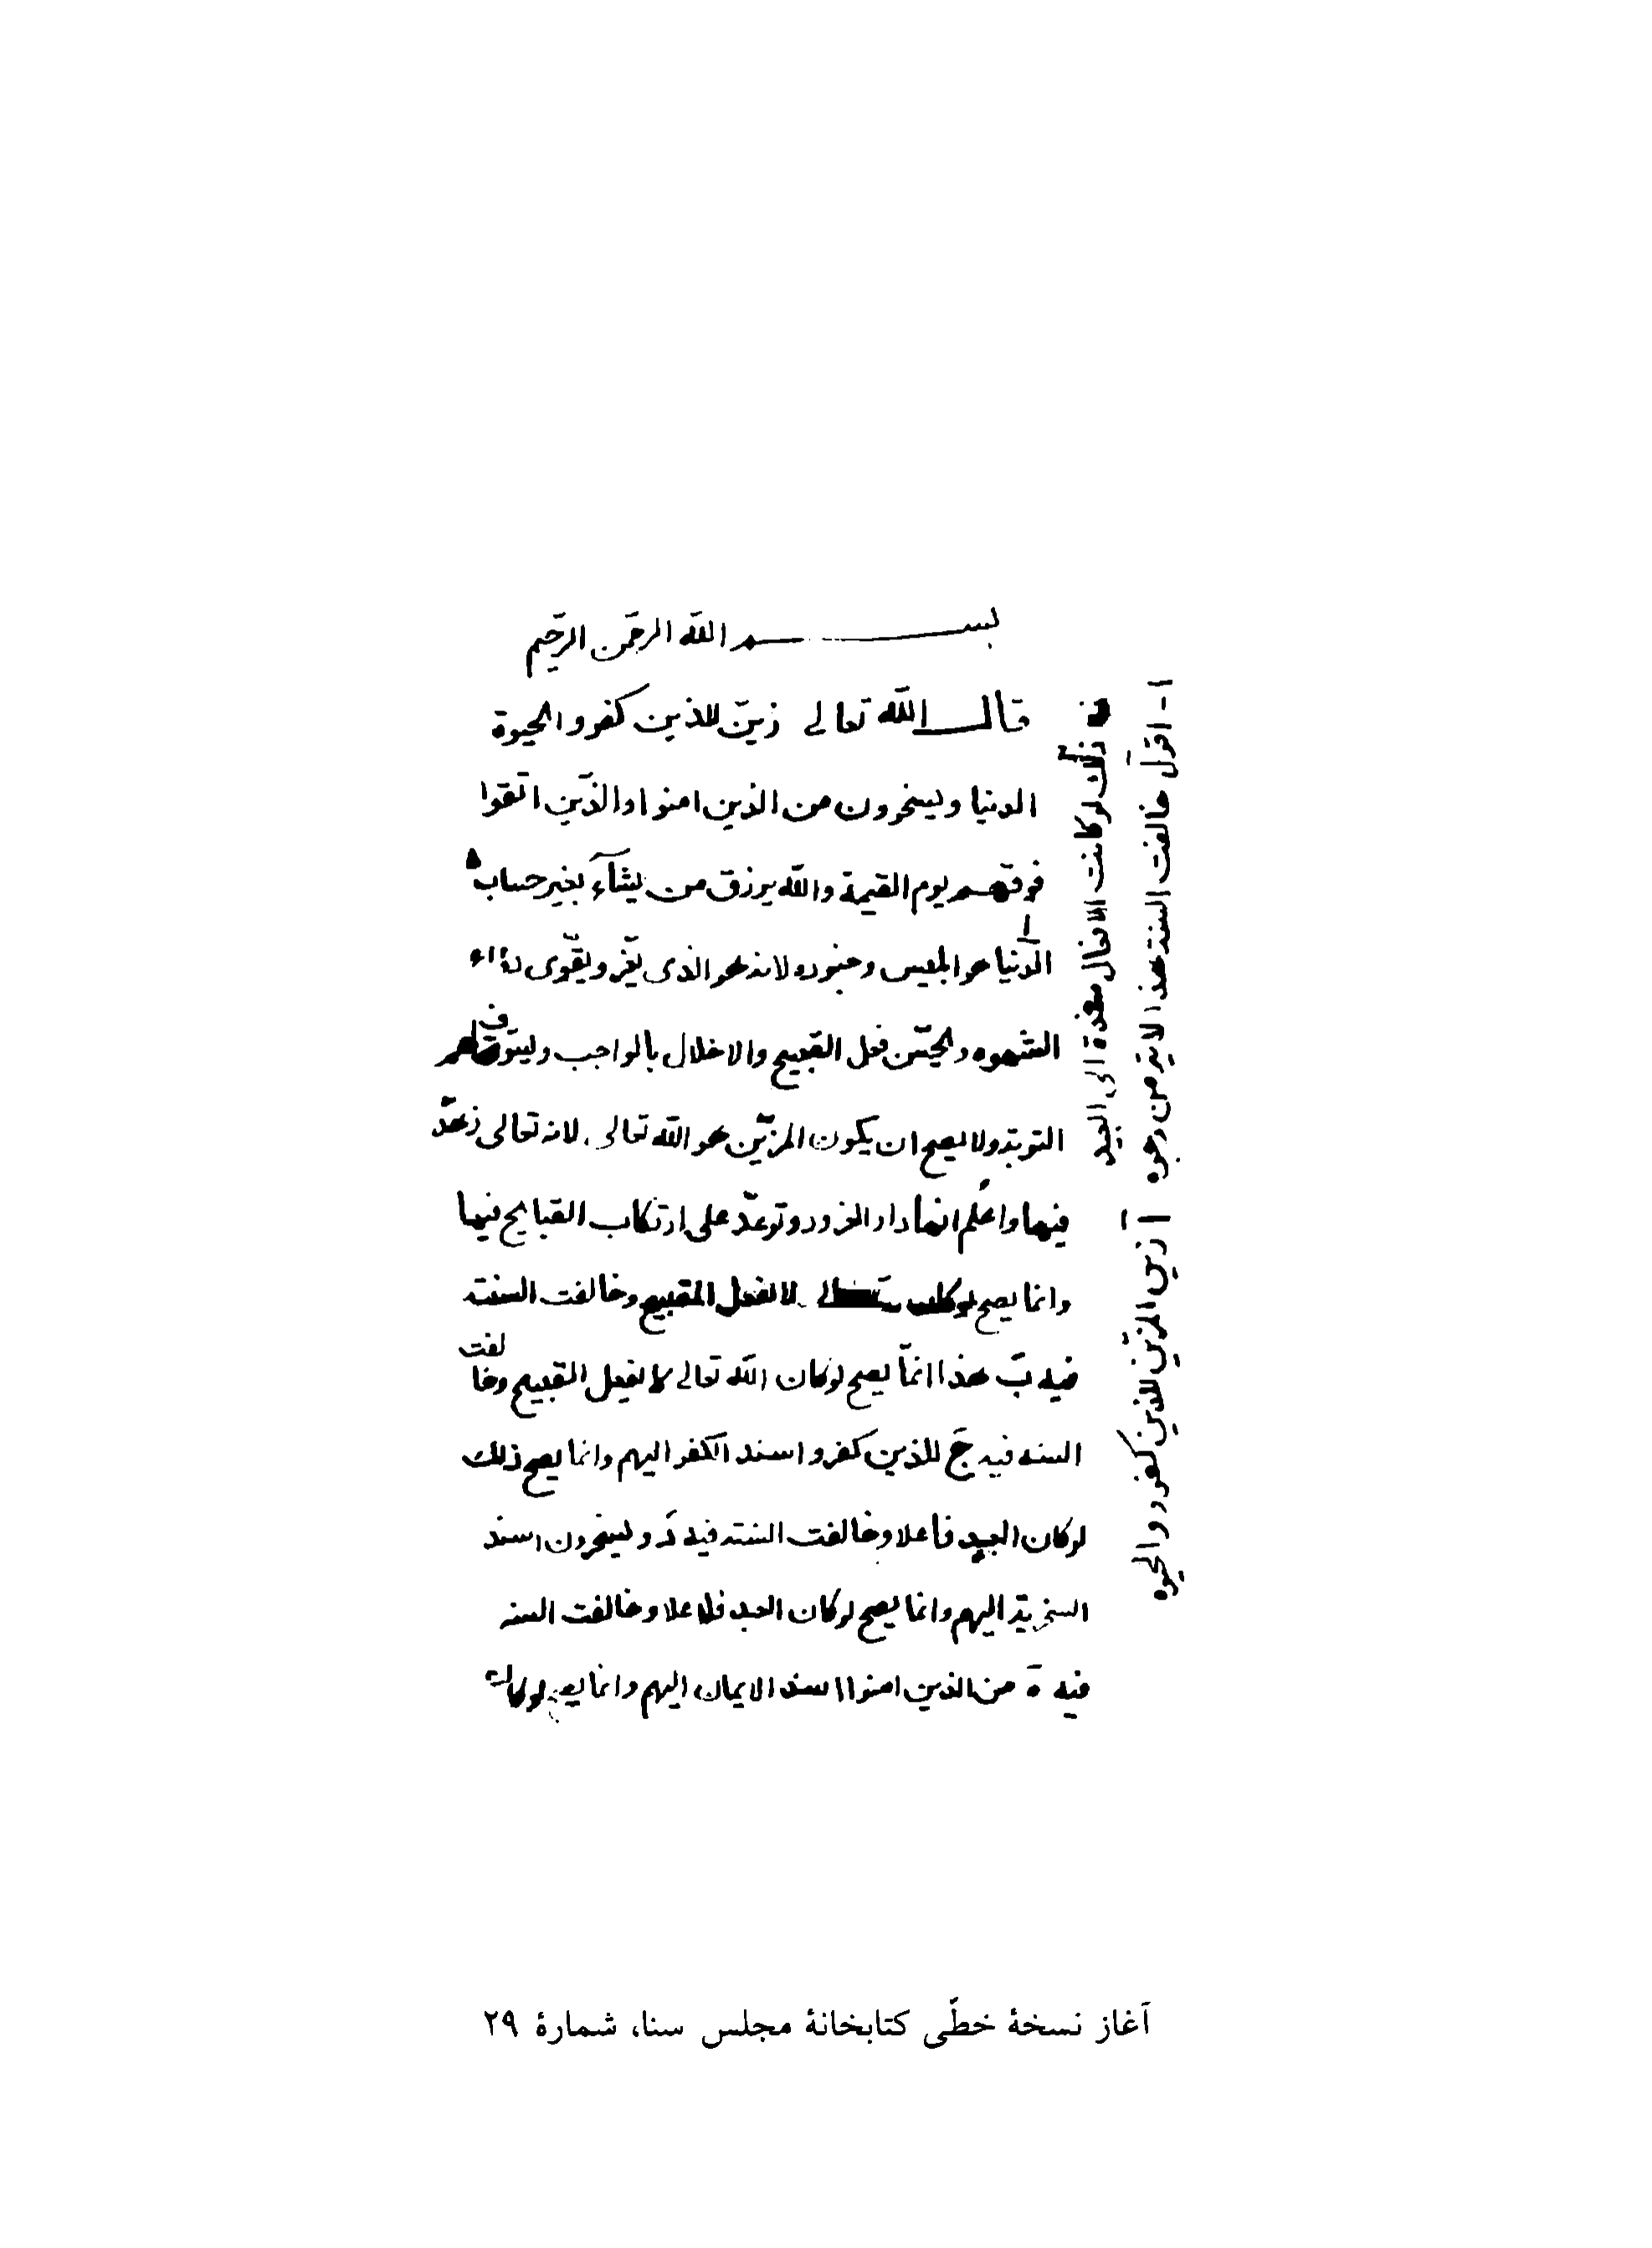 بسم الله الرحمن الرحيم
قال الله تعالى زين للذين كفروا الحيوة
الدنيا ويسخرون من الذين امنوا والذين اتقوا
فوقهم يوم القيمة والله يرزق من يشآء بغير حساب
الدنيا هو ابليس وجنوده لانه هو الذى يغر ويقوى
الشهوه ويحسن فعل القبيح والاخلال بالواجب ويسوف لهم
التوبة ولا يصح ان يكون المزين هو الله تعالى لانه تعالى زهد
فيها واعلم انها دار الغرور وتوعد على ارتكاب القبايح فيها
وانما يصح لا لفعل القبيح وخالفت السنة
فيه ب هذا انما يصح لو كان الله تعالى لا يفعل القبيح وخالفت
السنه فيه ج للذين كفروا اسند الكفر اليهم وانما يصح ذلك
لو كان العبد فاعلا وخالفت السنة فيه د ويسخرون اسند
السخرية اليهم وانما يصح لو كان العبد فاعلا وخالفت السنه
فيه ه من الذين امنوا اسند الايمان اليهم وانما يصح لو كان
١- اقول خالفت السنة هذا الاية من وجوه آ زين المزين للذين كفروا الحيوه
ذلك لو كانت الافعال مستندة الى العبيد
آغاز نسخهٔ خطّى كتابخانهٔ مجلس سنا، شمارهٔ ۲۹